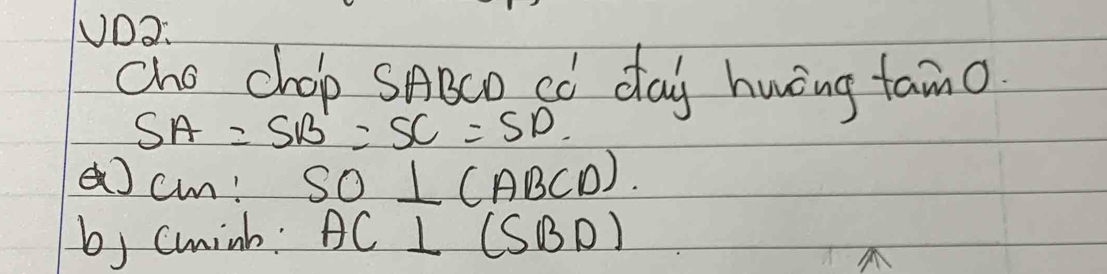 VD2:
Cho chóp SABCD có đáy hướng tâm O.
SA = SB = SC = SD.
a) cm: SO ⊥ (ABCD).
b) cminh: AC ⊥ (SBD)